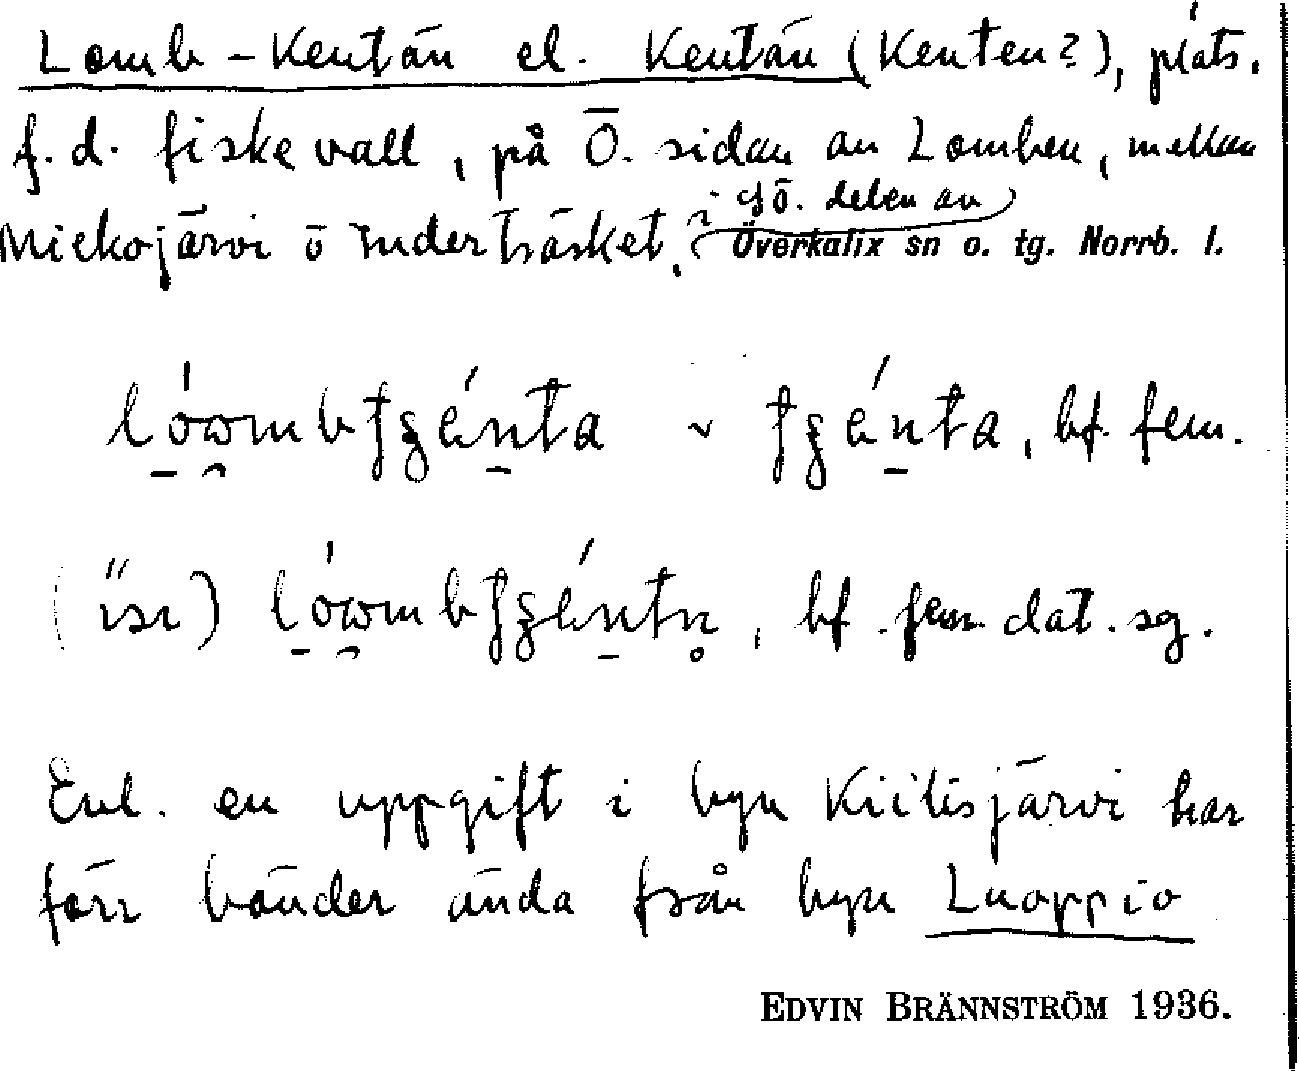 Lomb-Kentän el. Kentän (Kenten?), plats,
f.d. fiskevall, på Ö. sidan av Lomben, mellan
i sö. delen av
Miekojärvi o Inderträsket. Överkalix sn o. tg. Norrb. l.
bf. fem.
bf. fem. dat. sg.
Enl. en uppgift i byn Kiilisjärvi har
förr bönder ända från byn Luoppio
EDVIN BRÄNNSTRÖM 1936.